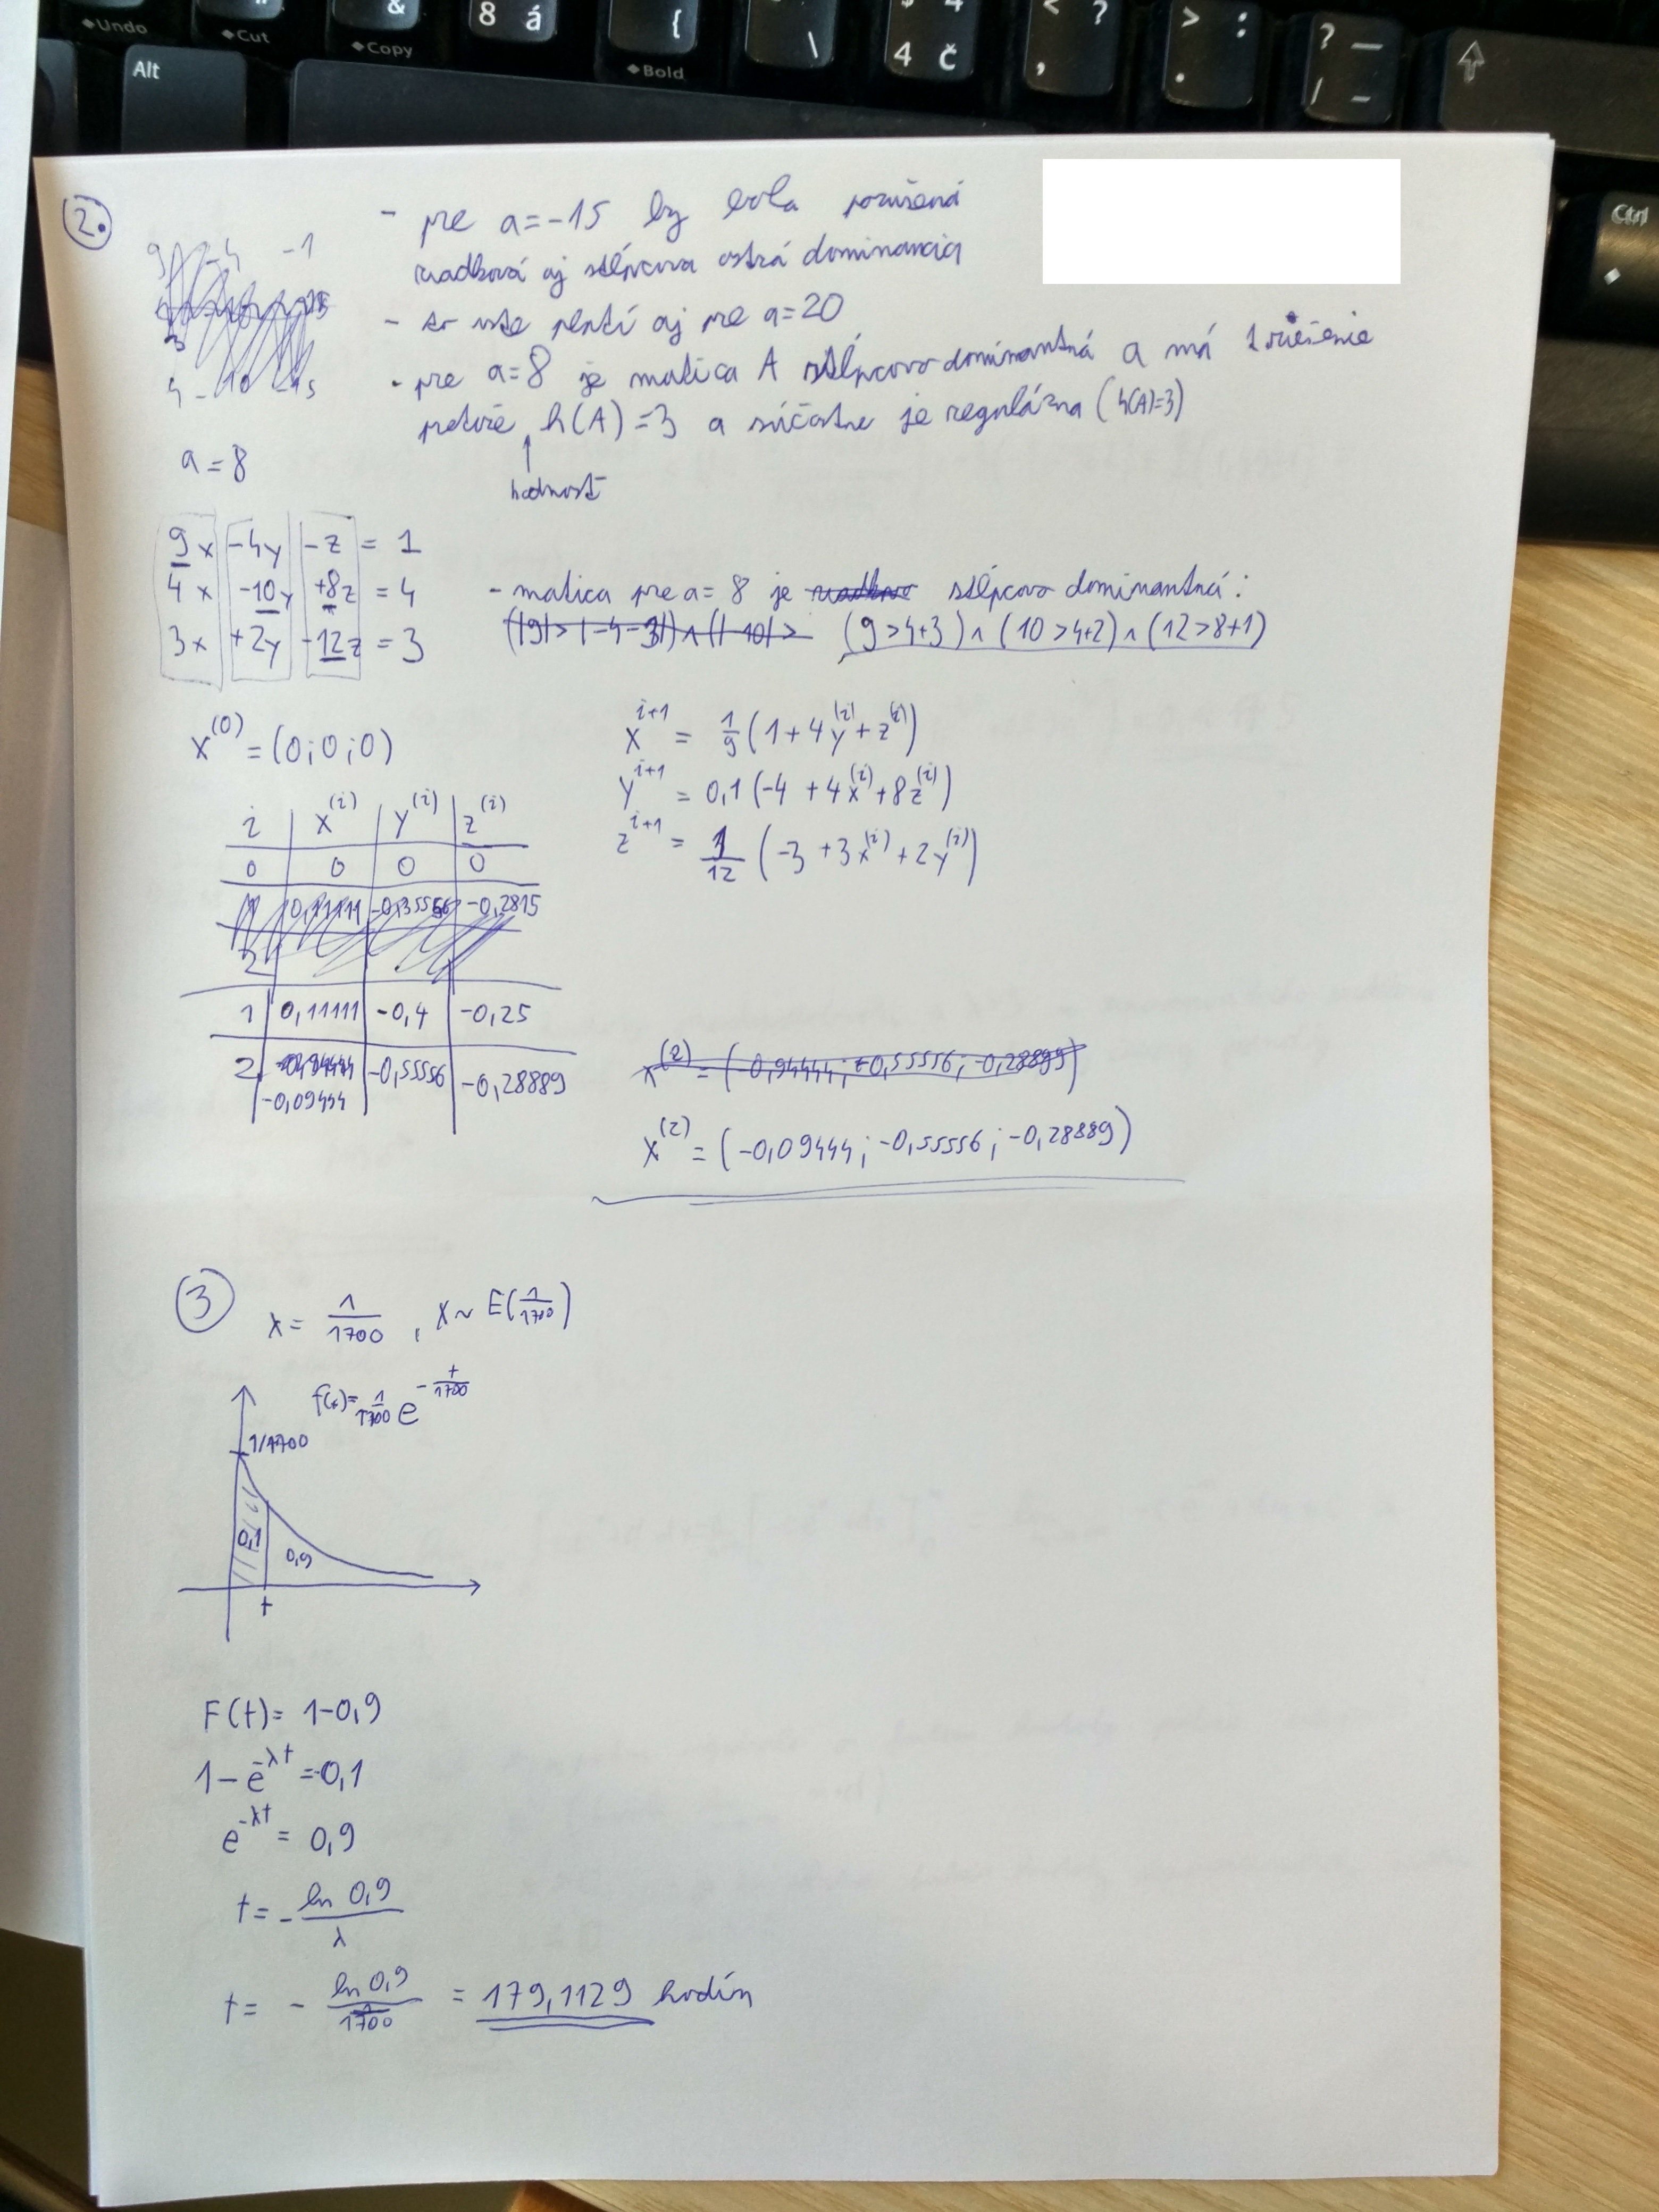 Undo
Cut
Copy
&
8 á
{
Bold
\
4 Č
< ?
,
> :
.
? —
/ _
Alt
Ctrl
2.
- pre a=-15 by bola porušená
riadková aj stĺpcova ostrá dominancia
- to iste platí aj pre a=20
- pre a=8 je matica A stĺpcovo dominantná a má 1 riešenie
pretože h(A)=3 a súčastne je regulárna (h(A)=3)
hodnosť
9 -4 -1
a=8
9x -4y -z = 1
4x -10y +8z = 4
3x +2y -12z = 3
- matica pre a=8 je riadkovo stĺpcovo dominantná:
(|9|>|-4-3|)∧(|-10|> (9>4+3)∧(10>4+2)∧(12>8+1)
x^(0) = (0;0;0)
x^i+1 = 1/9 (1+4y^(i)+z^(i))
y^i+1 = 0,1(-4 +4x^(i)+8z^(i))
z^i+1 = 1/12 (-3 +3x^(i)+2y^(i))
i x^(i) y^(i) z^(i)
0 0 0 0
1 0,11111 -0,35556 -0,2815
2
1 0,11111 -0,4 -0,25
2 -0,94444 -0,55556 -0,28889
-0,09444
x^(2) = (-0,94444; -0,55556; -0,28899)
x^(2) = (-0,09444; -0,55556; -0,28889)
3
x = 1/1700 , x~E(1/1700)
f(t)= 1/1700 e^-t/1700
1/1700
0,1
0,9
t
F(t)= 1-0,9
1-e^-λt = 0,1
e^-λt = 0,9
t = - ln 0,9 / λ
t = - ln 0,9 / 1/1700 = 179,1129 hodín